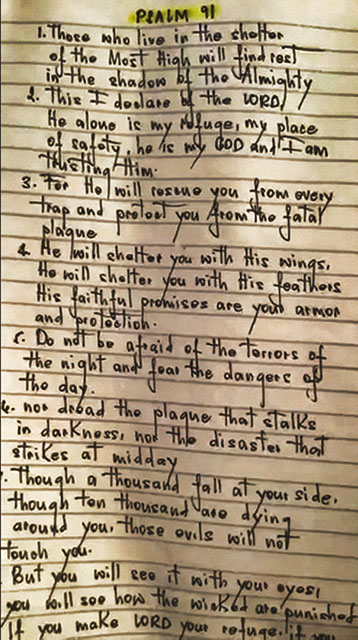 PSALM 91
1. Those who live in the shelter
of the Most High will find rest
in the shadow of the Almighty
2. This I declare of the LORD,
He alone is my refuge, my place
of safety, he is my GOD and I am
trusting Him.
3. For He will rescue you from every
trap and protect you from the fatal
plague
4. He will shelter you with His wings,
He will shelter you with His feathers
His faithful promises are your armor
and protection.
5. Do not be afraid of the terrors of
the night and fear the dangers of
the day.
6. nor dread the plague that stalks
in darkness, nor the disaster that
strikes at midday
. Though a thousand fall at your side,
though ten thousand are dying
around you, those evils will not
touch you.
. But you will see it with your eyes,
you will see how the wicked are punished
If you make LORD your refuge, if you